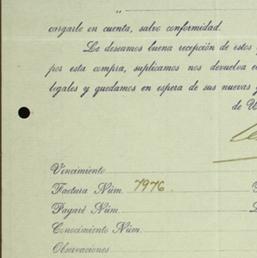 cargarle en cuenta, salvo conformidad.
Le deseamos buena recepción de estos
por esta compra, suplicamos nos devuelva
legales y quedamos en espera de sus nuevas
de
Vencimiento
Factura Núm. 7976.
Pagaré Núm.
Conocimiento Núm.
Observaciones